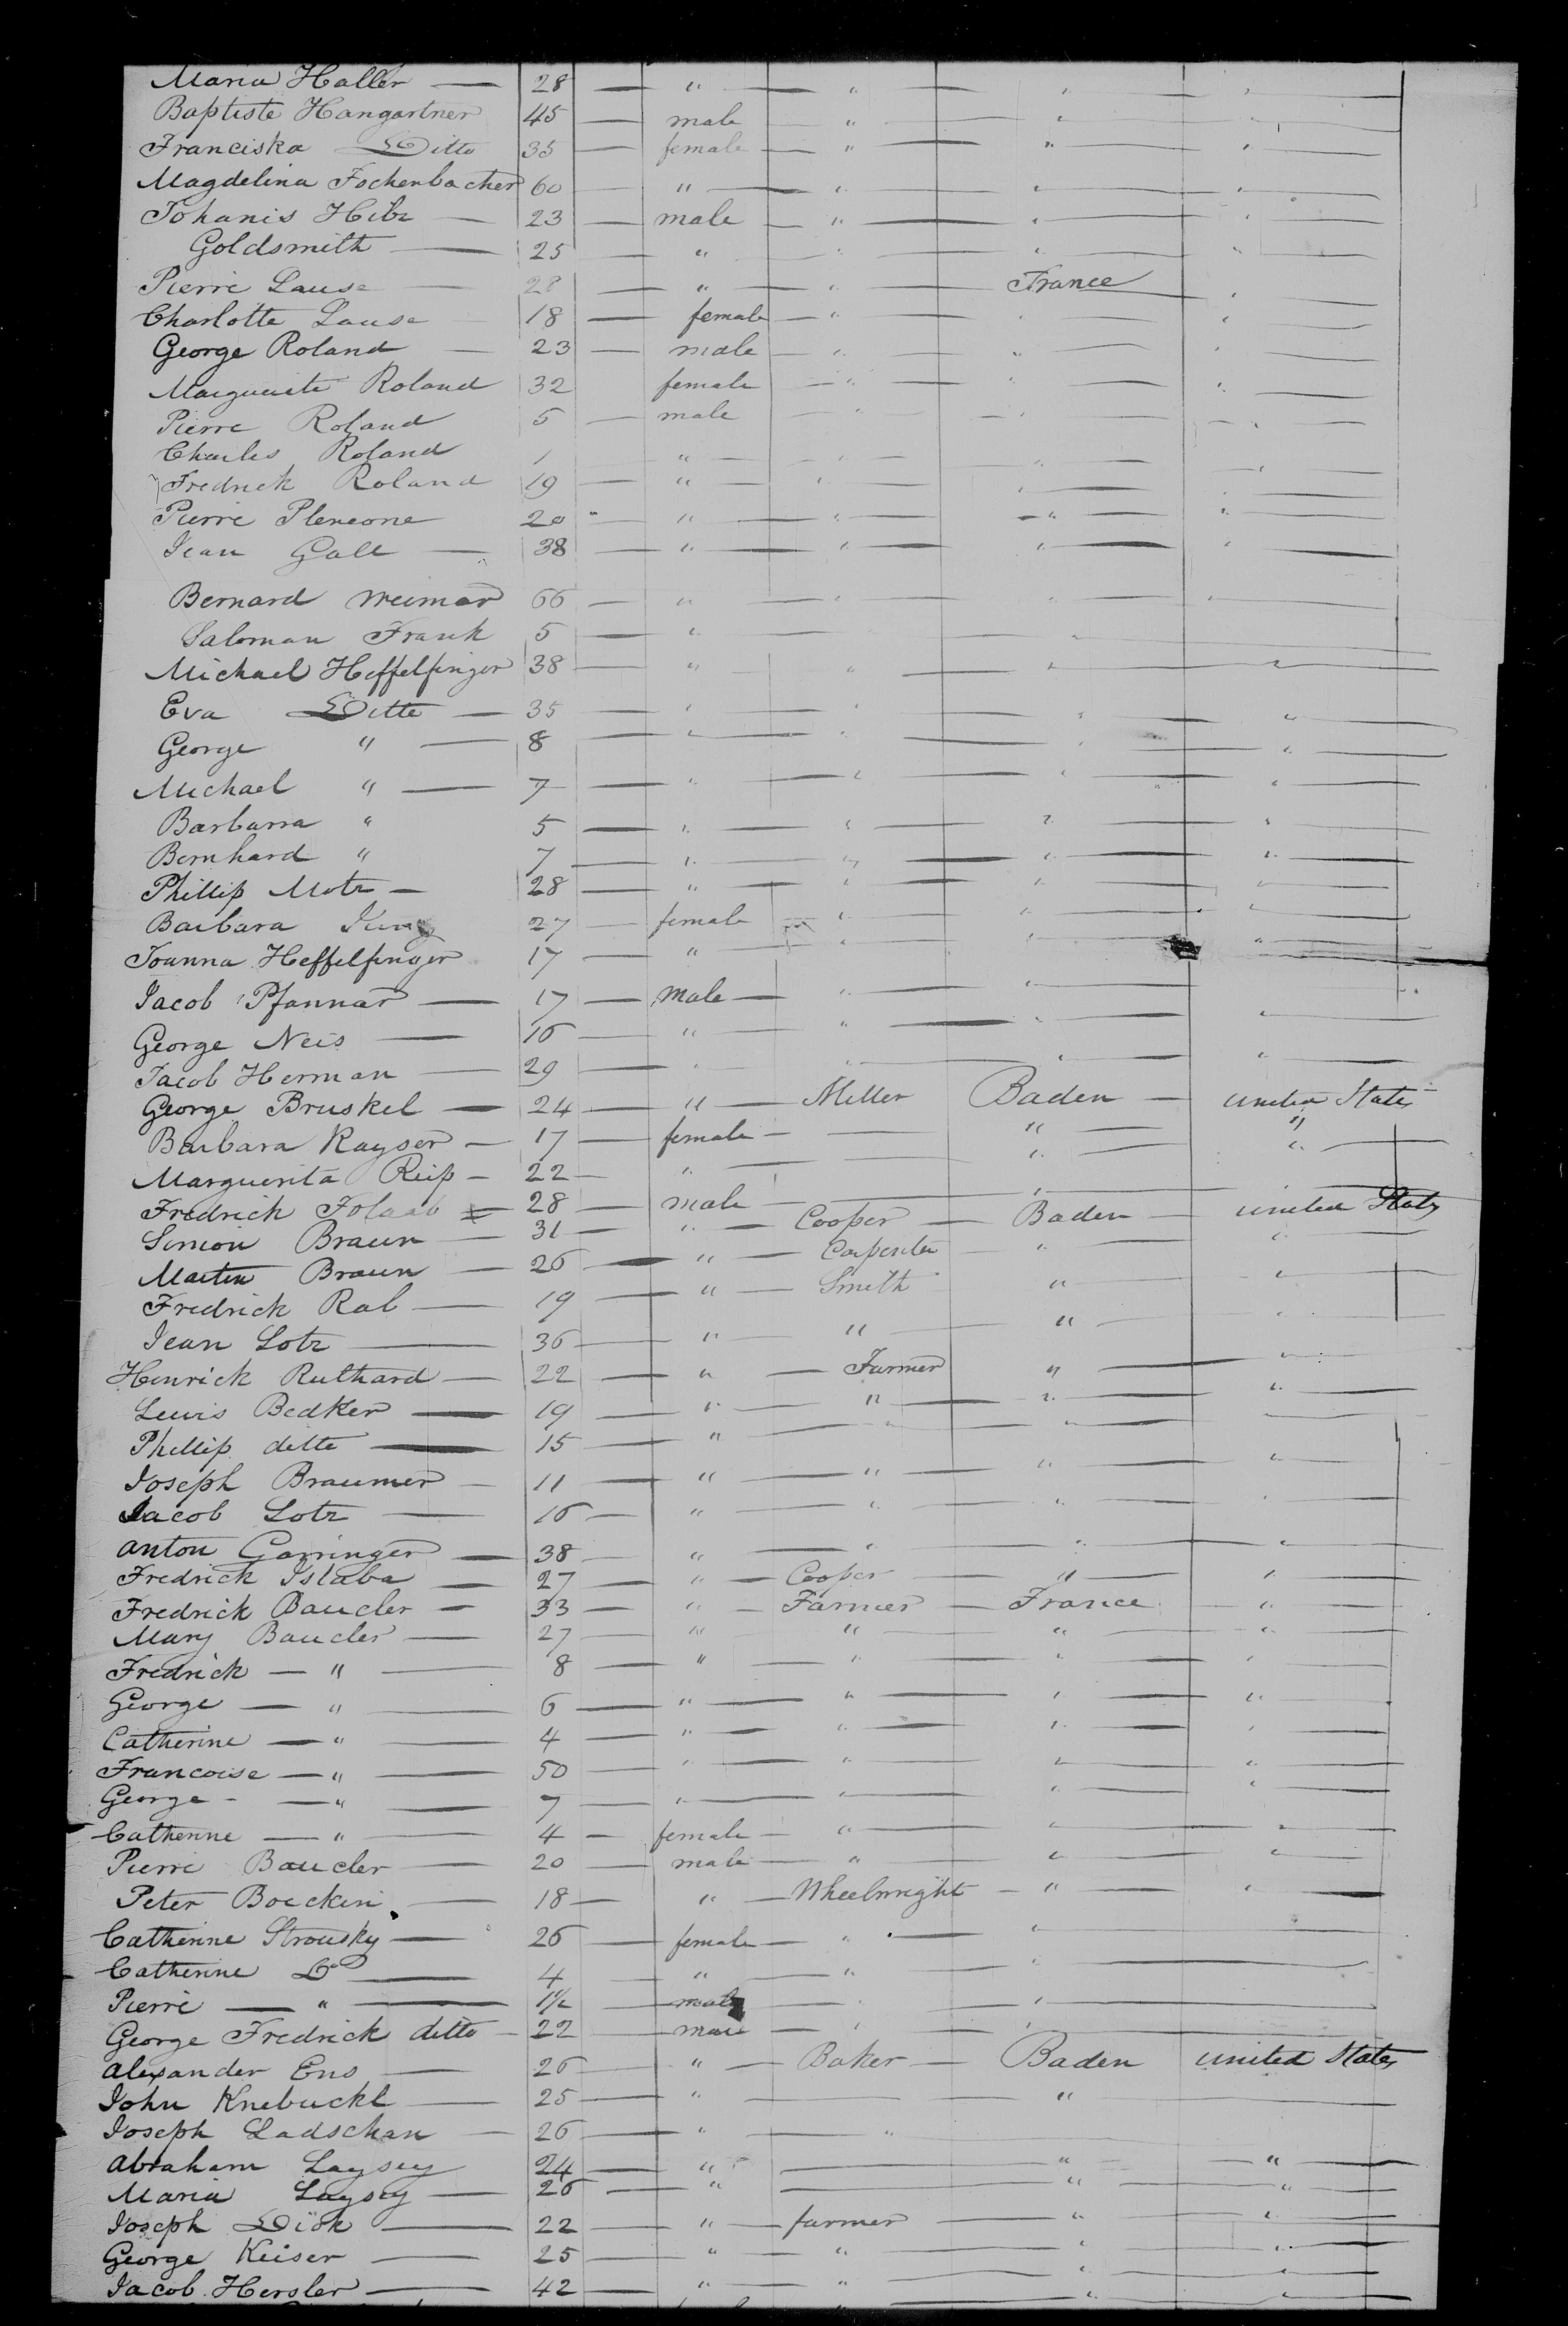 Maria Haller — 28 — " — " — " — "
Baptiste Hangartner 45 — male — " — " — "
Franciska Ditto 35 — female — " — " — "
Magdelina Fochenbacher 60 — " — " — " — "
Johanis Hibz — 23 — male — " — " — "
Goldsmith — 25 — " — " — " — "
Pierre Lause — 28 — " — " — France — "
Charlotte Lause — 18 — female — " — " — "
George Roland — 23 — male — " — " — "
Marguerite Roland 32 female — " — " — "
Pierre Roland 5 — male — " — " — "
Charles Roland 1 " — " — " — "
Fredrick Roland 19 — " — " — " — "
Pierre Pleneone 20 " " — " — " — "
Jean Gall — 38 — " — " — " — "
Bernard Weimar 66 — " — " — " — "
Saloman Frank 5 — " — — "
Michael Heffelfinger 38 — " — " — " — "
Eva Ditto — 35 — " — " — " — "
George " — 8 — " — " — " — "
Michael " — 7 — " — " — " — "
Barbarra " 5 — " — " — " — "
Bernhard " 7 — " — " — " — "
Phillip Motz — 28 — " — " — " — "
Barbara 27 — female — " — " — "
Joanna Heffelfinger 17 — " — " — " — "
Jacob Pfannar — 17 — male — " — " —
George Neis — 16 — " — " — " — "
Jacob Herman — 29 — " — " — " — "
George Bruskel — 24 — " — Miller Baden — united States
Barbara Kayser — 17 — female — — " — "
Marguerita Reip — 22 — " — — " — "
Fredrick Folaab — 28 — male — — " — "
Simon Braun — 31 — " — Cooper — Baden — united States
Martin Braun — 26 — " — Carpenter — " — "
Fredrick Rab — 19 — " — Smith " — "
Jean Lotz — 36 — " — " " — "
Henrick Ruthard — 22 — " — Farmer " — "
Lewis Bedker — 19 — " — " — " — "
Phillip detto — 15 — " — " — " —
Joseph Braumer — 11 — " — " — " — "
Jacob Lotz — 16 — " — " — " — "
Anton Garringer — 38 — " — " — " — "
Fredrick Islaba — 27 — " — Cooper — " — "
Fredrick Baucler — 33 — " — Farmer — France — "
Mary Baucler — 27 — " — " — " — "
Fredrick — " — 8 — " — " — " — "
George — " — 6 — " — " — " — "
Catherine — " — 4 — " — " — " — "
Francoise — " — 50 — " — " — " — "
George — " — 7 — " — " — " — "
Catherine — " — 4 — female — " — " — "
Pierre Baucler — 20 — male — " — " — "
Peter Boeckin — 18 — " — Wheelwright — " — "
Catherine Strousky — 26 — female — " — " —
Catherine Do — 4 — " — " — " —
Pierre — " — 1½ — male — " — " —
George Fredrick detto — 22 — male — " — " —
Alexander Ens — 26 — " — Baker — Baden united States
John Knebuckl — 25 — " — — " —
Joseph Ladschan — 26 — " — " —
Abraham Laysey 24 — " — — " — "
Maria Laysey — 26 — " — — " — "
Joseph Dick — 22 — " — farmer — " — "
George Keiser — 25 — " — " — " — "
Jacob Hersler — 42 — " — " — " — "